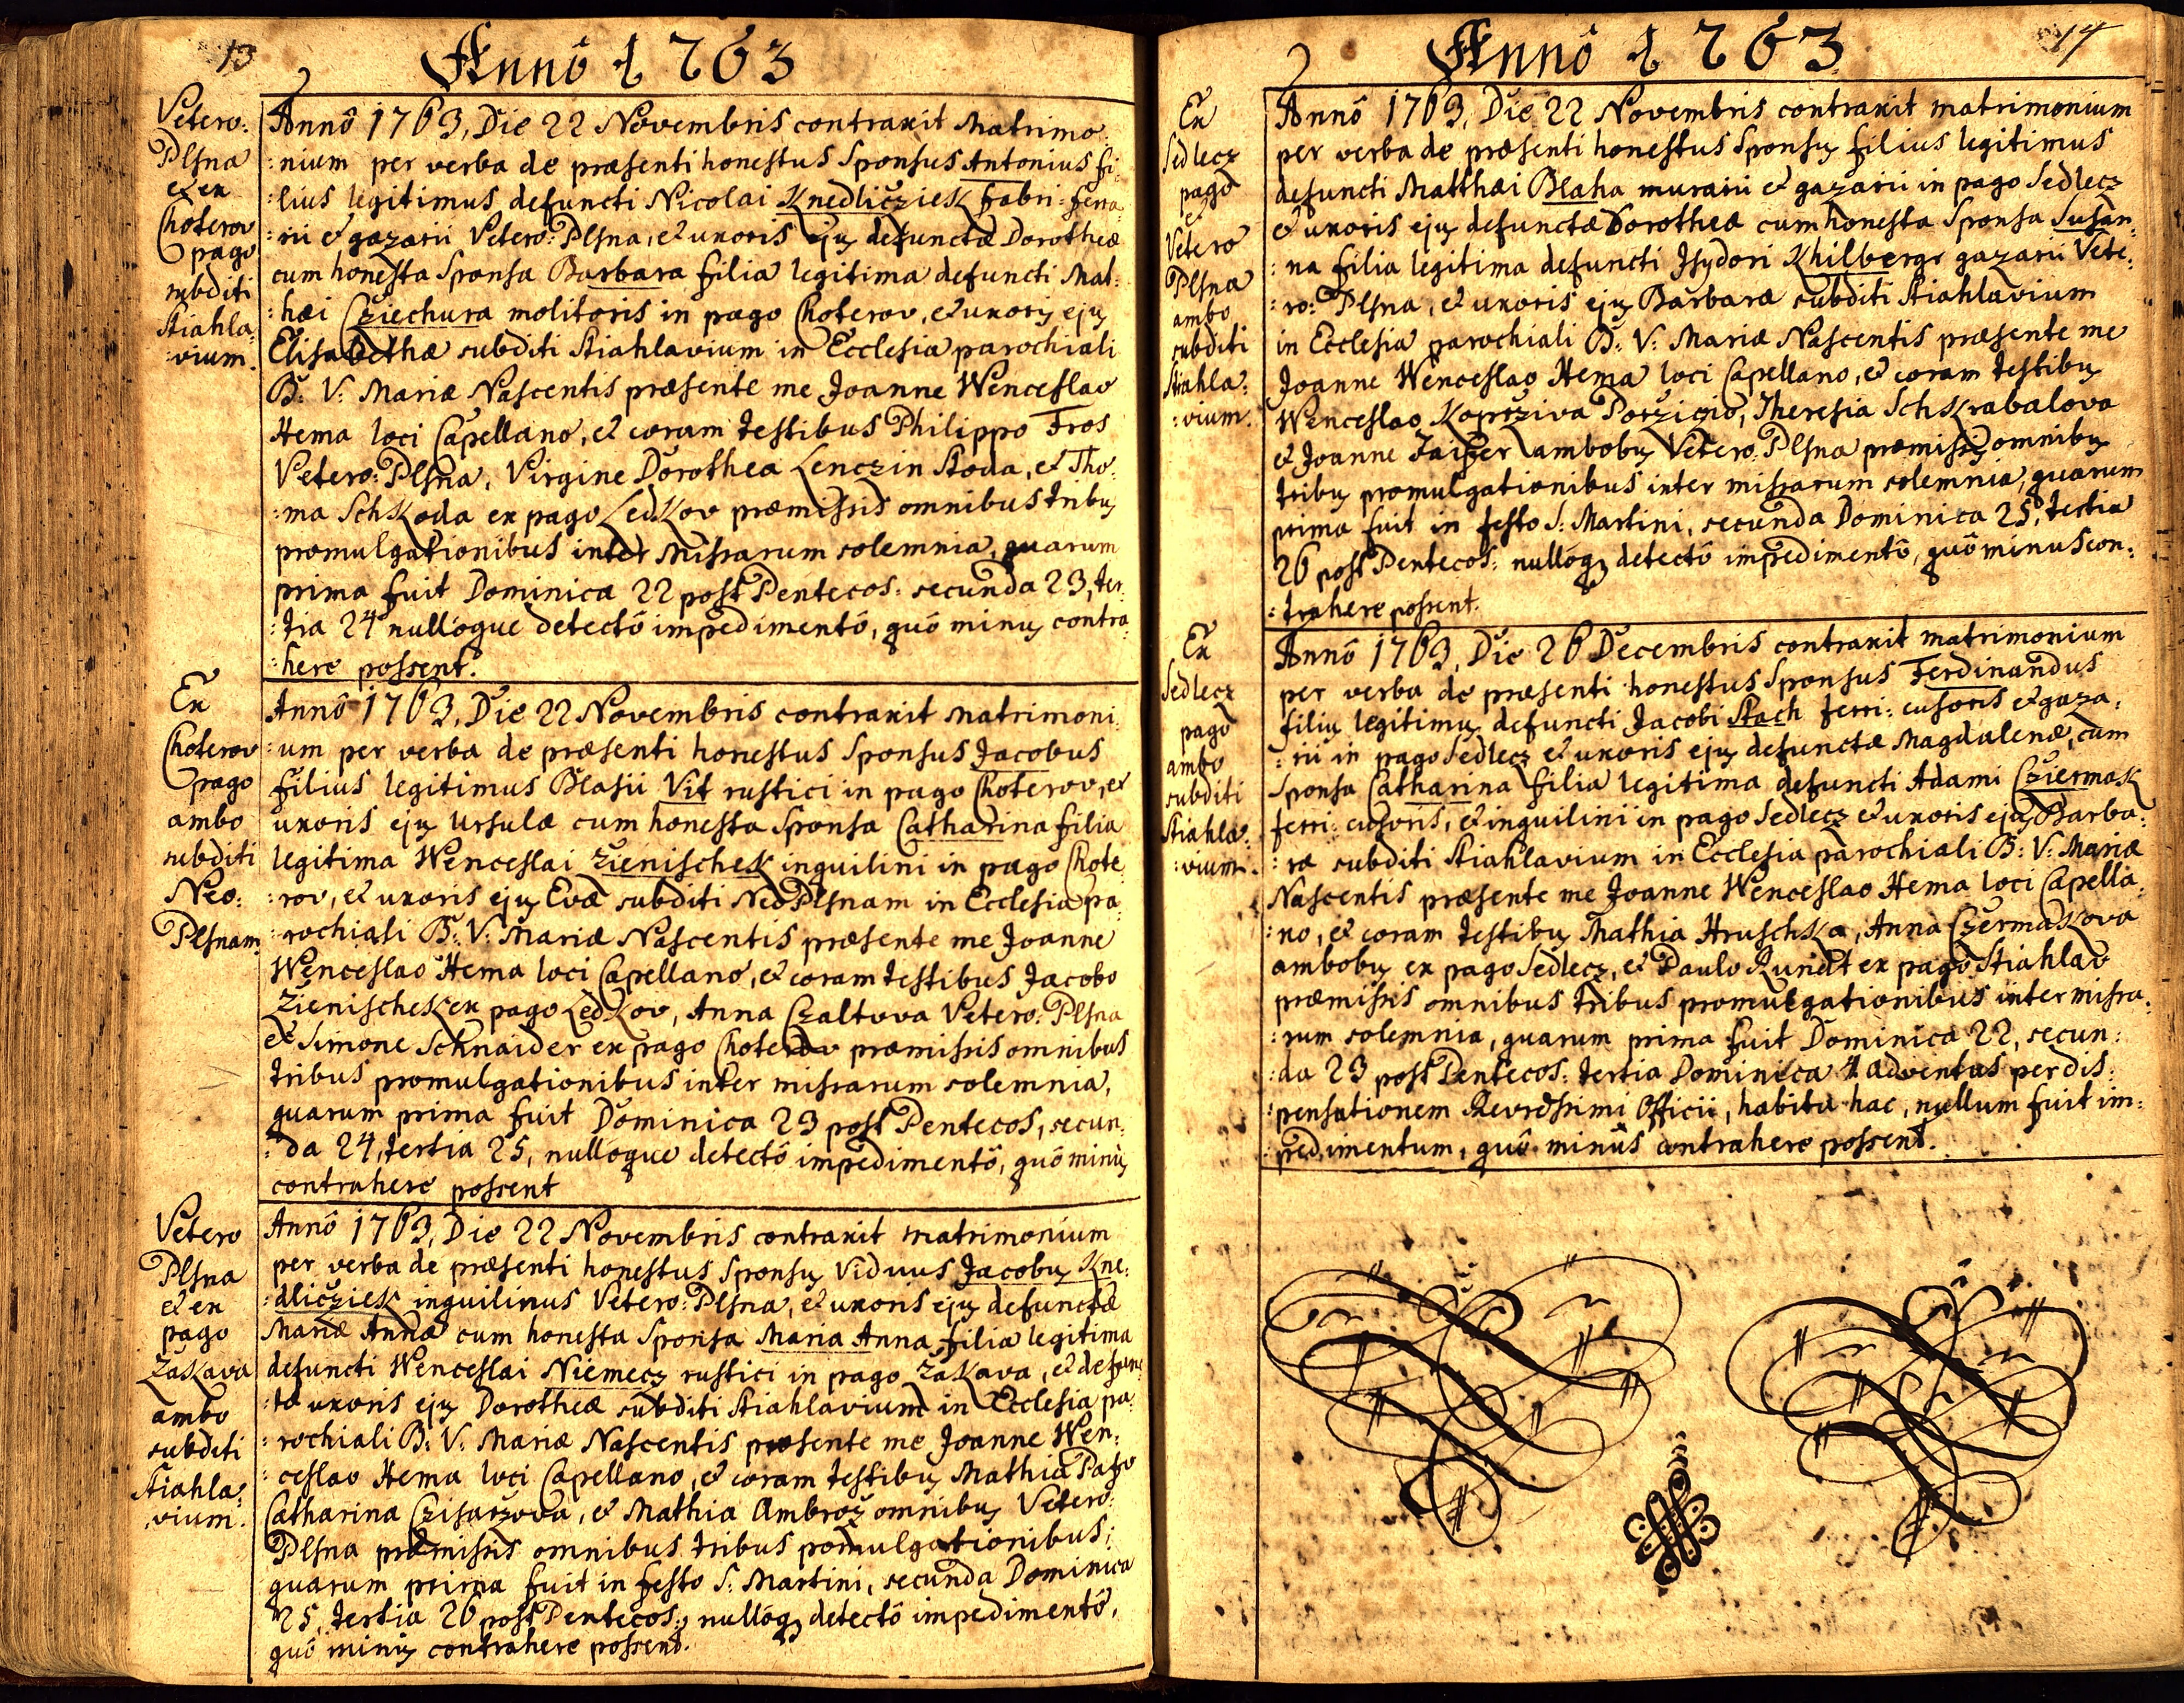 13
Annô 1763
Vetero:
Plſna
et ex
Choterov
pago
subditi
Stiahla:
:vium.
Annô 1763, Die 22 Novembris contraxit Matrimo:
:nium per verba de præsenti honestus Sponsus Antonius fi:
:lius legitimus defuncti Nicolai Knedlicziek fabri-ferra:
:rii et gazarii Vetero: Plſna, et uxoris ejus defunctæ Dorotheæ
cum honesta Sponsa Barbara filia legitima defuncti Mat:
:hæi Cziechura molitoris in pago Choterov, et uxoris ejus
Elisabethæ subditi Stiahlavium in Ecclesia parochiali
B: V: Mariæ Nascentis præsente me Joanne Wenceslao
Hema loci Capellano, et coram testibus Philippo Fros
Vetero: Plſna, Virgine Dorothea Lenczin Stoda, et Tho:
:ma SchKoda ex pago LedKov præmissis omnibus tribus
promulgationibus inter Missarum solemnia, quarum
prima fuit Dominica 22 post Pentecos: secunda 23, ter:
:tia 24 nullôque detectô impedimentô, quô minus contra:
:here possent.
Ex
Choterov
pago
ambo
subditi
Neo:
Plſnam
Annô 1763, Die 22 Novembris contraxit Matrimoni:
:um per verba de præsenti honestus Sponsus Jacobus
filius legitimus Blasii Vit rustici in pago Choterov, et
uxoris ejus Ursulæ cum honesta Sponsa Catharina filia
legitima Wenceslai ZienischeK inquilini in pago Chote:
:rov, et uxoris ejus Evæ subditi Neo Plſnam in Ecclesia pa:
:rochiali B: V: Mariæ Nascentis præsente me Joanne
Wenceslao Hema loci Capellano, et coram testibus Jacobo
ZienischeK ex pago LedKov, Anna Czaltova Vetero: Plſna
et Simone Schnaider ex pago Choterov præmissis omnibus
tribus promulgationibus inter missarum solemnia,
quarum prima fuit Dominica 23 post Pentecos, secun:
:da 24, tertia 25, nullôque detectô impedimentô, quô minus
contrahere possent
Vetero
Plſna
et ex
pago
ZaKava
ambo
subditi
Stiahla:
:vium.
Annô 1763, Die 22 Novembris contraxit matrimonium
per verba de præsenti honestus Sponsus Viduus Jacobus Kne:
:dlicziek inquilinus Vetero: Plſna, et uxoris ejus defunctæ
Mariæ Annæ cum honesta Sponsa Maria Anna filia legitima
defuncti Wenceslai Niemecz rustici in pago ZaKava, et defunc:
:tæ uxoris ejus Dorotheæ subditi Stiahlavium in Ecclesia pa:
:rochiali B: V: Mariæ Nascentis præsente me Joanne Wen:
:ceslao Hema loci Capellano, et coram testibus Mathia
Catharina Czisarzova, et Mathia Ambroz omnibus Vetero:
Plſna præmissis omnibus tribus pomulgationibus;
quarum prima fuit in festo S: Martini, secunda Dominica
25, tertia 26 post Pentecos: nullôq3 detectô impedimentô,
quô minus contrahere possent.
14
Annô 1763
Ex
Sedlecz
pago
et
Vetero
Plſna
ambo
subditi
Stiahla:
:vium.
Annô 1763, Die 22 Novembris contraxit matrimonium
per verba de præsenti honestus Sponsus filius legitimus
defuncti Matthæi Blaha murarii et gazarii in pago Sedlecz
et uxoris ejus defunctæ Dorotheæ cum honesta Sponsa Susan:
:na filia legitima defuncti Isydori Khilbergr gazarii Vete:
:ro: Plſna, et uxoris ejus Barbaræ subditi Stiahlavium
in Ecclesia parochiali B: V: Mariæ Nascentis præsente me
Joanne Wenceslao Hema loci Capellano, et coram testibus
Wenceslao Koprziva Porzicio, Theresia SchKrabalova
et Joanne Faiper ambobus Vetero: Plſna præmissis omnibus
tribus promulgationibus inter missarum solemnia, quarum
prima fuit in festo S: Martini, secunda Dominica 25, tertia
26 post Pentecos: nullôq3 detectô impedimentô, quô minus con:
:trahere possent.
Ex
Sedlecz
pago
ambo
subditi
Stiahla:
:vium.
Annô 1763, Die 26 Decembris contraxit matrimonium
per verba de præsenti honestus Sponsus Ferdinandus
filius legitimus defuncti Jacobi Stach ferri-cusoris et gaza:
:rii in pago Sedlecz et uxoris ejus defunctæ Magdalenæ, cum
Sponsa Catharina filia legitima defuncti Adami CziermaK
ferri-cusoris, et inquilinii in pago Sedlecz et uxoris ejus Barba:
:ræ subditi Stiahlavium in Ecclesia parochiali B: V: Mariæ
Nascentis præsente me Joanne Wenceslao Hema loci Capella:
:no, et coram testibus Mathia HruschKa, Anna CzermaKova
ambobus ex pago Sedlecz, et Paulo Rundt ex pago Stiahlav
præmissis omnibus tribus promulgationibus inter missa:
:rum solemnia, quarum prima fuit Dominica 22, secun:
:da 23 post Pentecos: tertia Dominica 1 adventus per dis:
:pensationem Revdssimi Officii, habita hac, nullum fuit im:
:pedimentum, quô minûs contrahere possent.